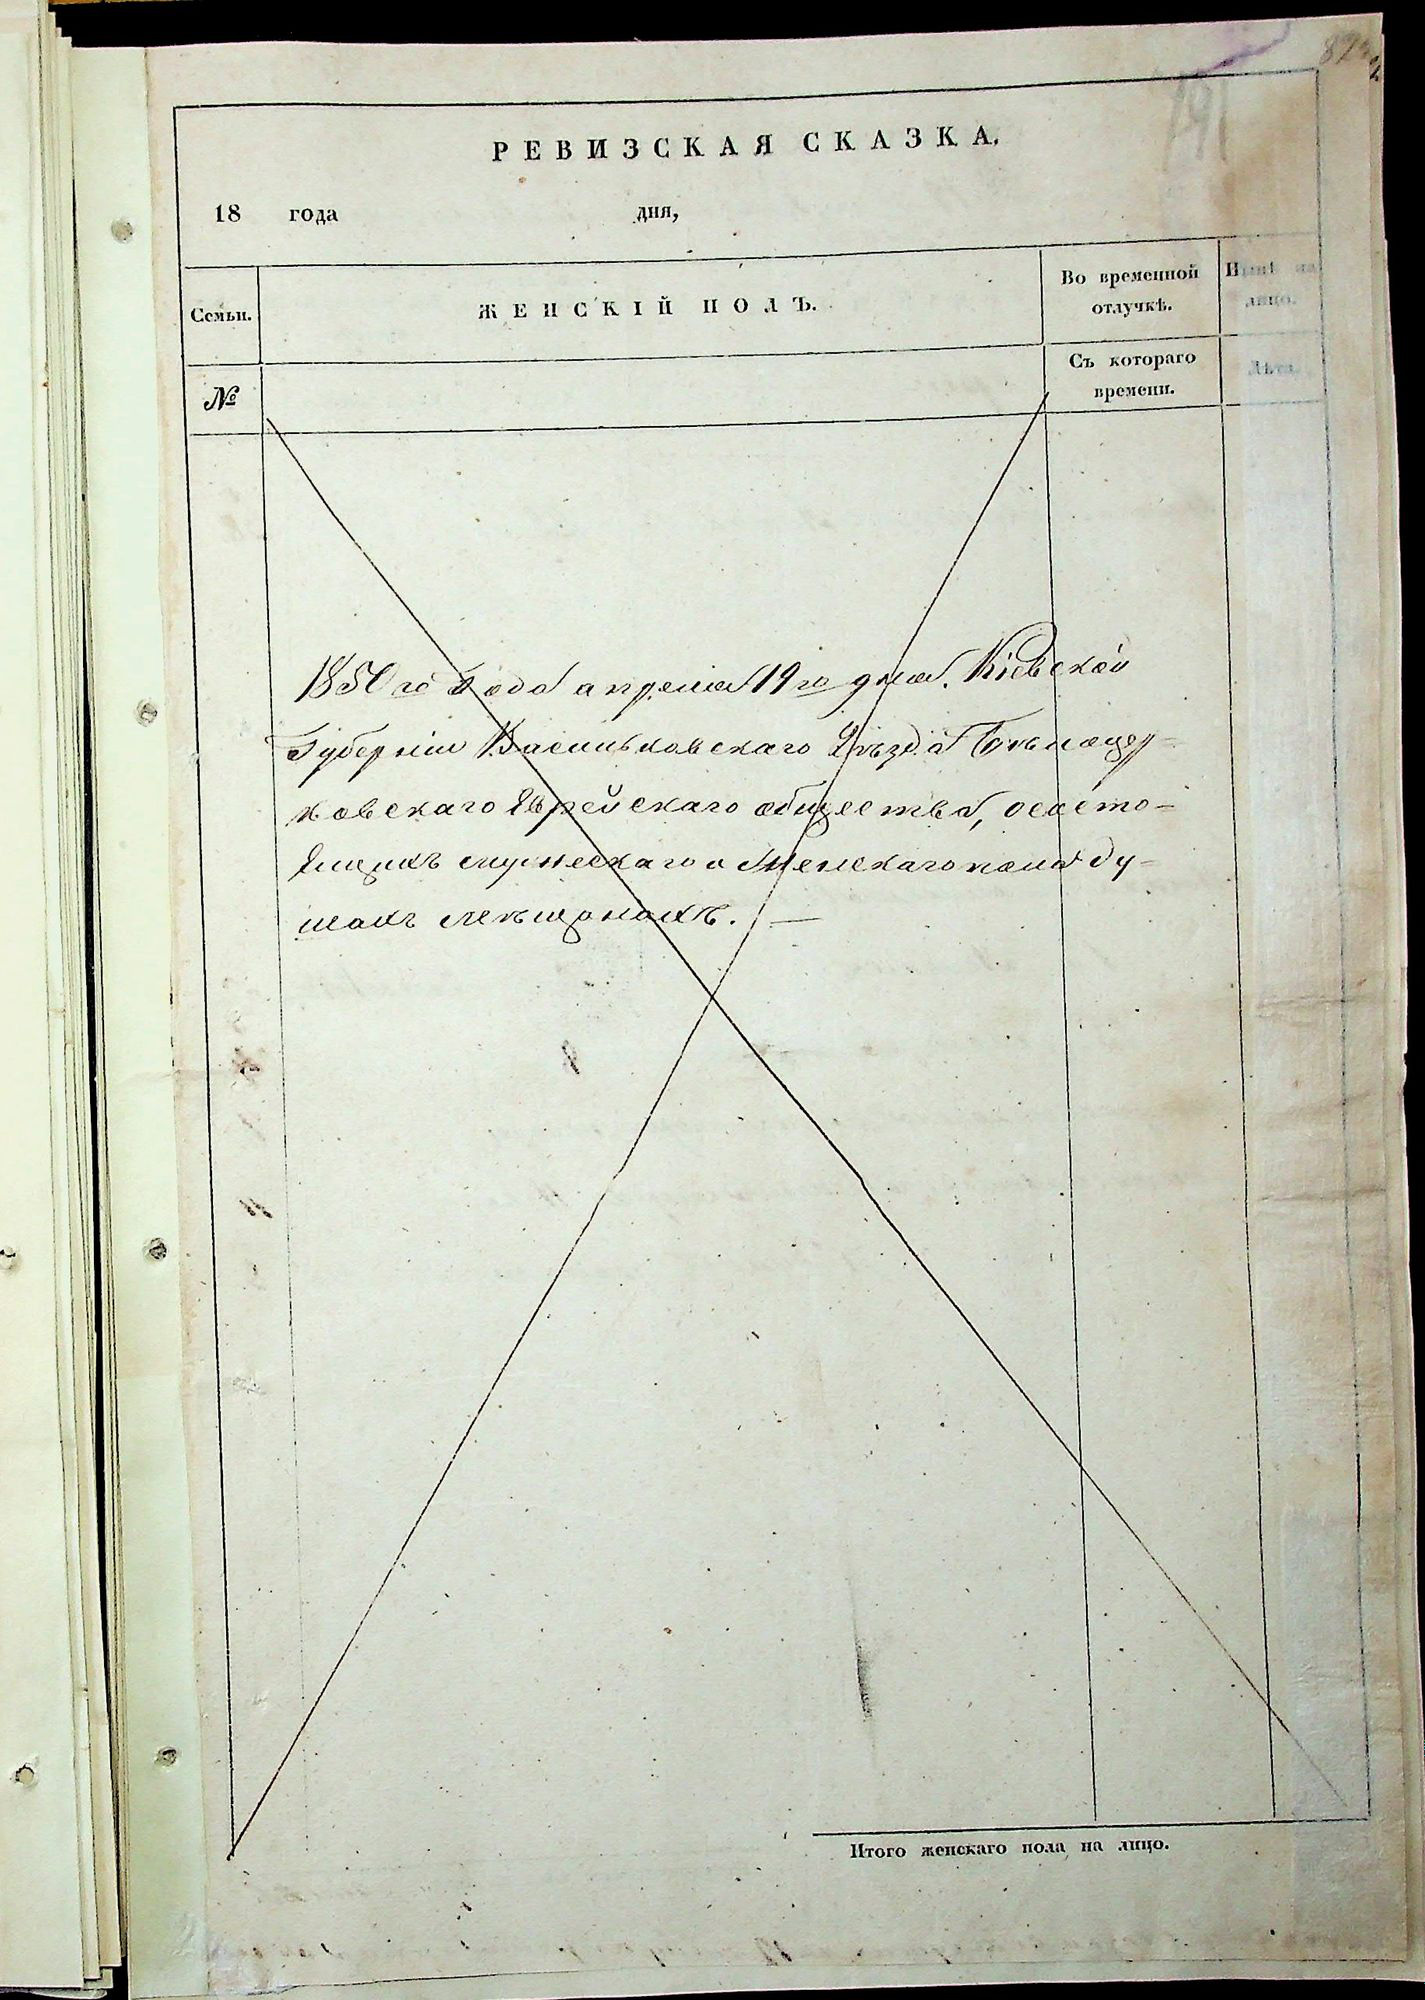 191
РЕВИЗСКАЯ СКАЗКА.
18 года дня,
Семьи.
ЖЕНСКІЙ ПОЛЪ.
Во временной
отлучкѣ.
Нынѣ на
лицо.
№
Съ котораго
времени.
Лѣта.
1850го Года апреля 19го дня. Кіевской
Губерніи Васильковскаго Уѣзда Бѣлоцер-
ковскаго Еврейскаго общества, ососто-
ящихъ мужескаго и женскаго пола ду-
шахъ мѣщанахъ. —
Итого женскаго пола на лицо.